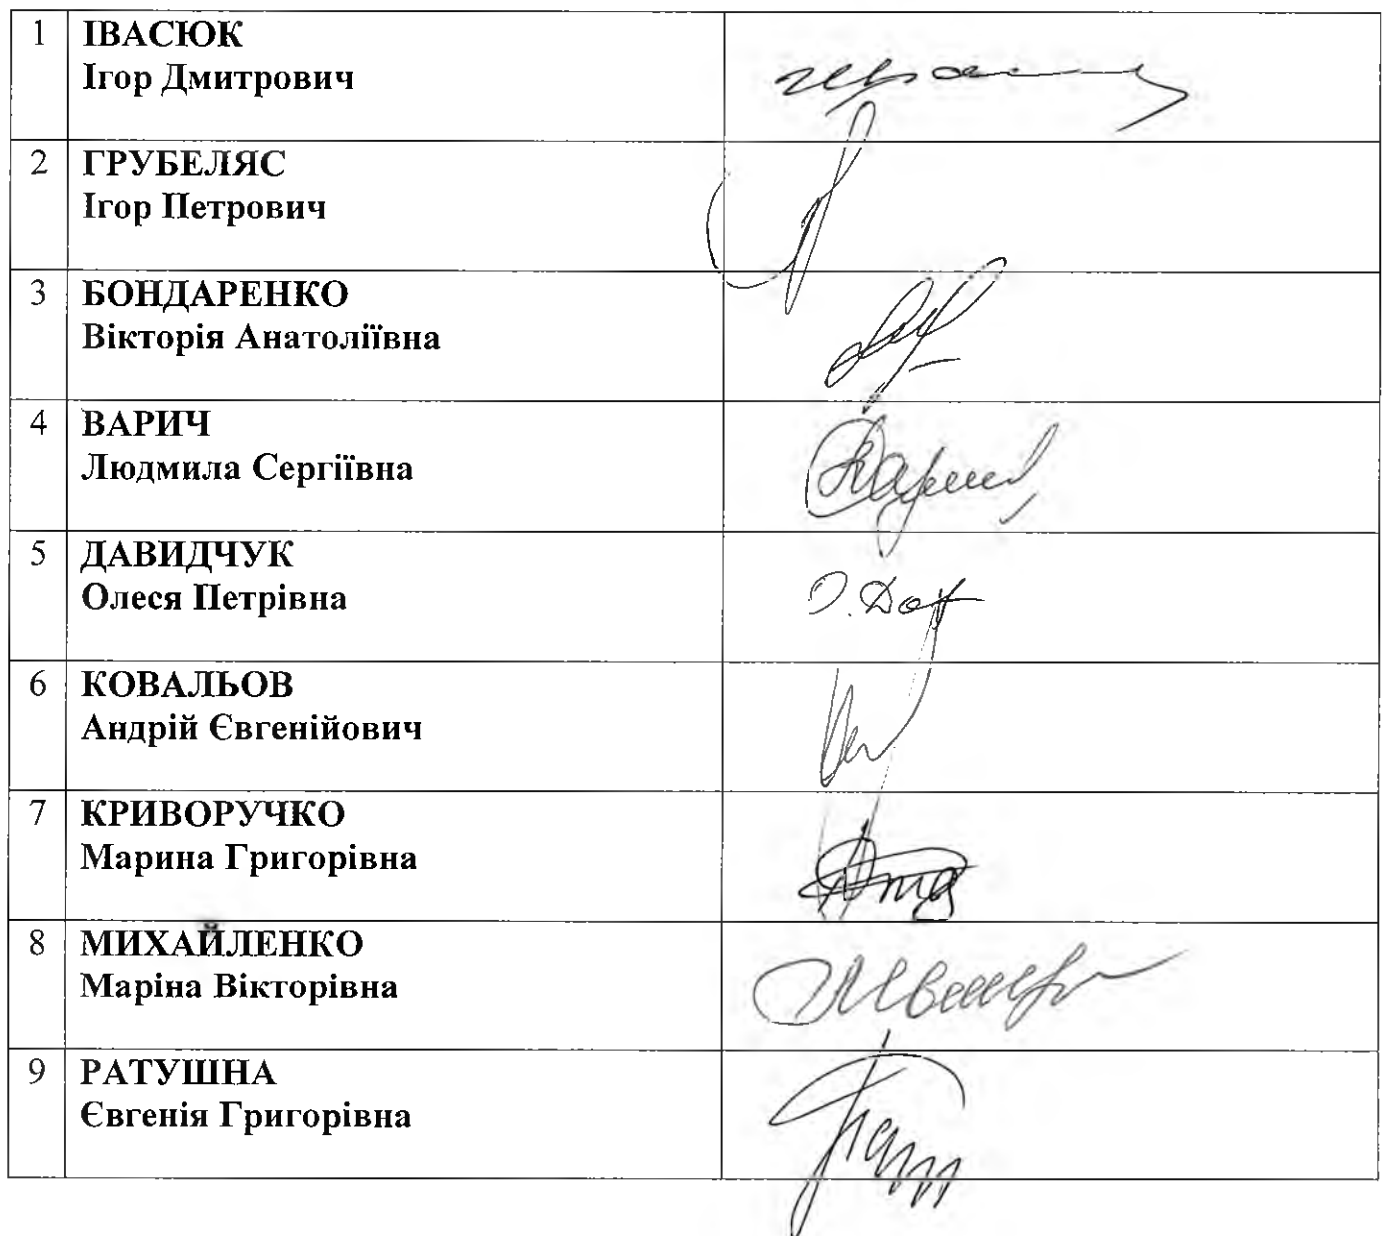 1 ІВАСЮК
Ігор Дмитрович
2 ГРУБЕЛЯС
Ігор Петрович
3 БОНДАРЕНКО
Вікторія Анатоліївна
4 ВАРИЧ
Людмила Сергіївна
5 ДАВИДЧУК
Олеся Петрівна
О. Дав
6 КОВАЛЬОВ
Андрій Євгенійович
7 КРИВОРУЧКО
Марина Григорівна
8 МИХАЙЛЕНКО
Маріна Вікторівна
9 РАТУШНА
Євгенія Григорівна